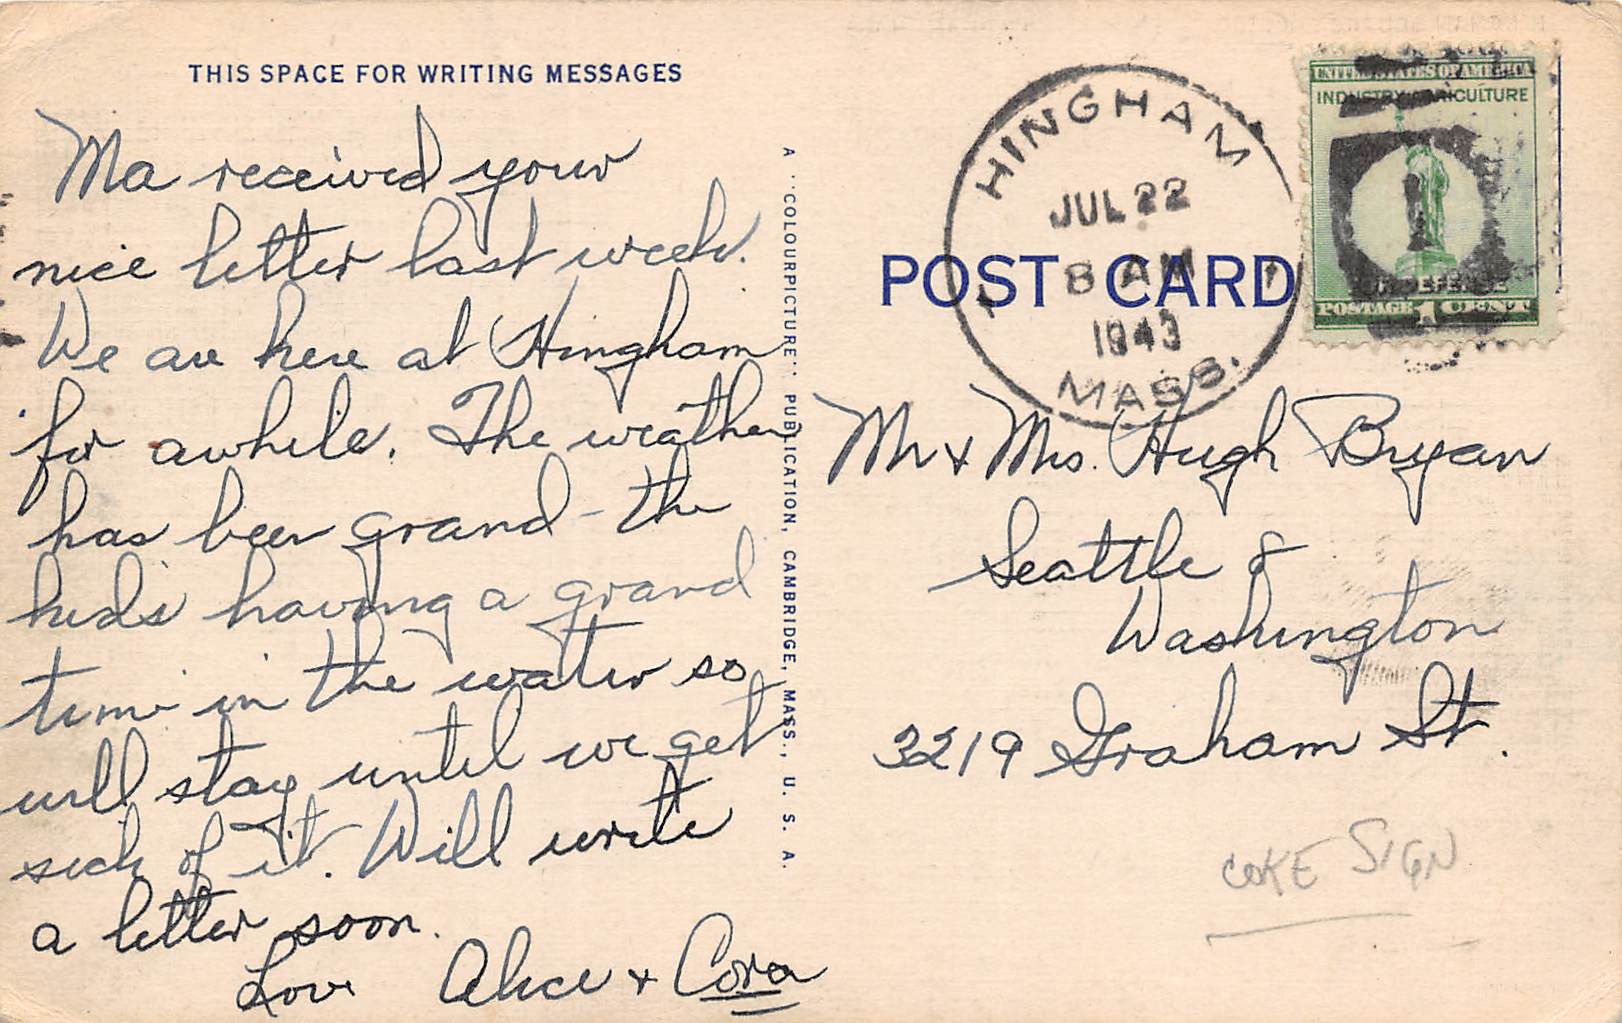 THIS SPACE FOR WRITING MESSAGES
Ma received your
nice letter last week.
We are here at Hingham
for awhile. The weather
has been grand - the
kids having a grand
time in the water so
will stay until we get
sick of it. Will write
a letter soon.
Love Alice + Cora
A "COLOURPICTURE" PUBLICATION, CAMBRIDGE, MASS., U. S. A.
POST CARD
HINGHAM
JUL 22
8 AM
1943
MASS.
UNITED STATES OF AMERICA
INDUSTRY AGRICULTURE
DEFENSE
POSTAGE 1 CENT
Mr + Mrs. Hugh Bryan
Seattle 8
Washington
3219 Graham St.
COKE SIGN